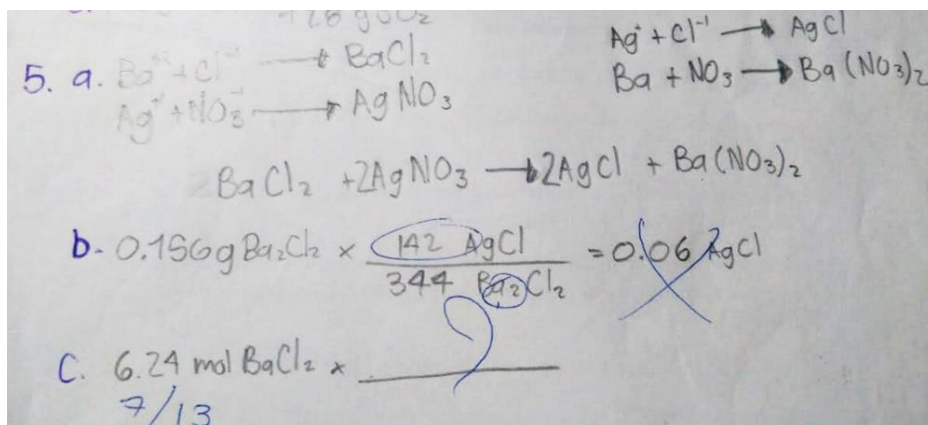 5. a. Ba⁺² + Cl⁻¹ → BaCl₂
Ag⁺¹ + NO₃⁻¹ → AgNO₃
Ag⁺ + Cl⁻¹ → AgCl
Ba + NO₃ → Ba(NO₃)₂
BaCl₂ + 2AgNO₃ → 2AgCl + Ba(NO₃)₂
b- 0.156g Ba₂Cl₂ × 142 AgCl / 344 Ba₂Cl₂ = 0.06 AgCl
C. 6.24 mol BaCl₂ ×
7/13